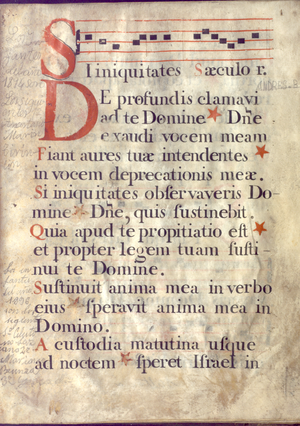 Si iniquitates Sæculo r.
De profundis clamavi
ad te Domine * Dñe
exaudi vocem meam
Fiant aures tuæ intendentes *
in vocem deprecationis meæ.
Si iniquitates obſervaveris Do-
mine * Dñe, quis ſuſtinebit.
Quia apud te propitiatio eſt *
et propter legem tuam ſuſti-
nui te Domine.
Suſtinuit anima mea in verbo
eius * ſperavit anima mea in
Domino.
A cuſtodia matutina uſque
ad noctem * ſperet Iſrael in